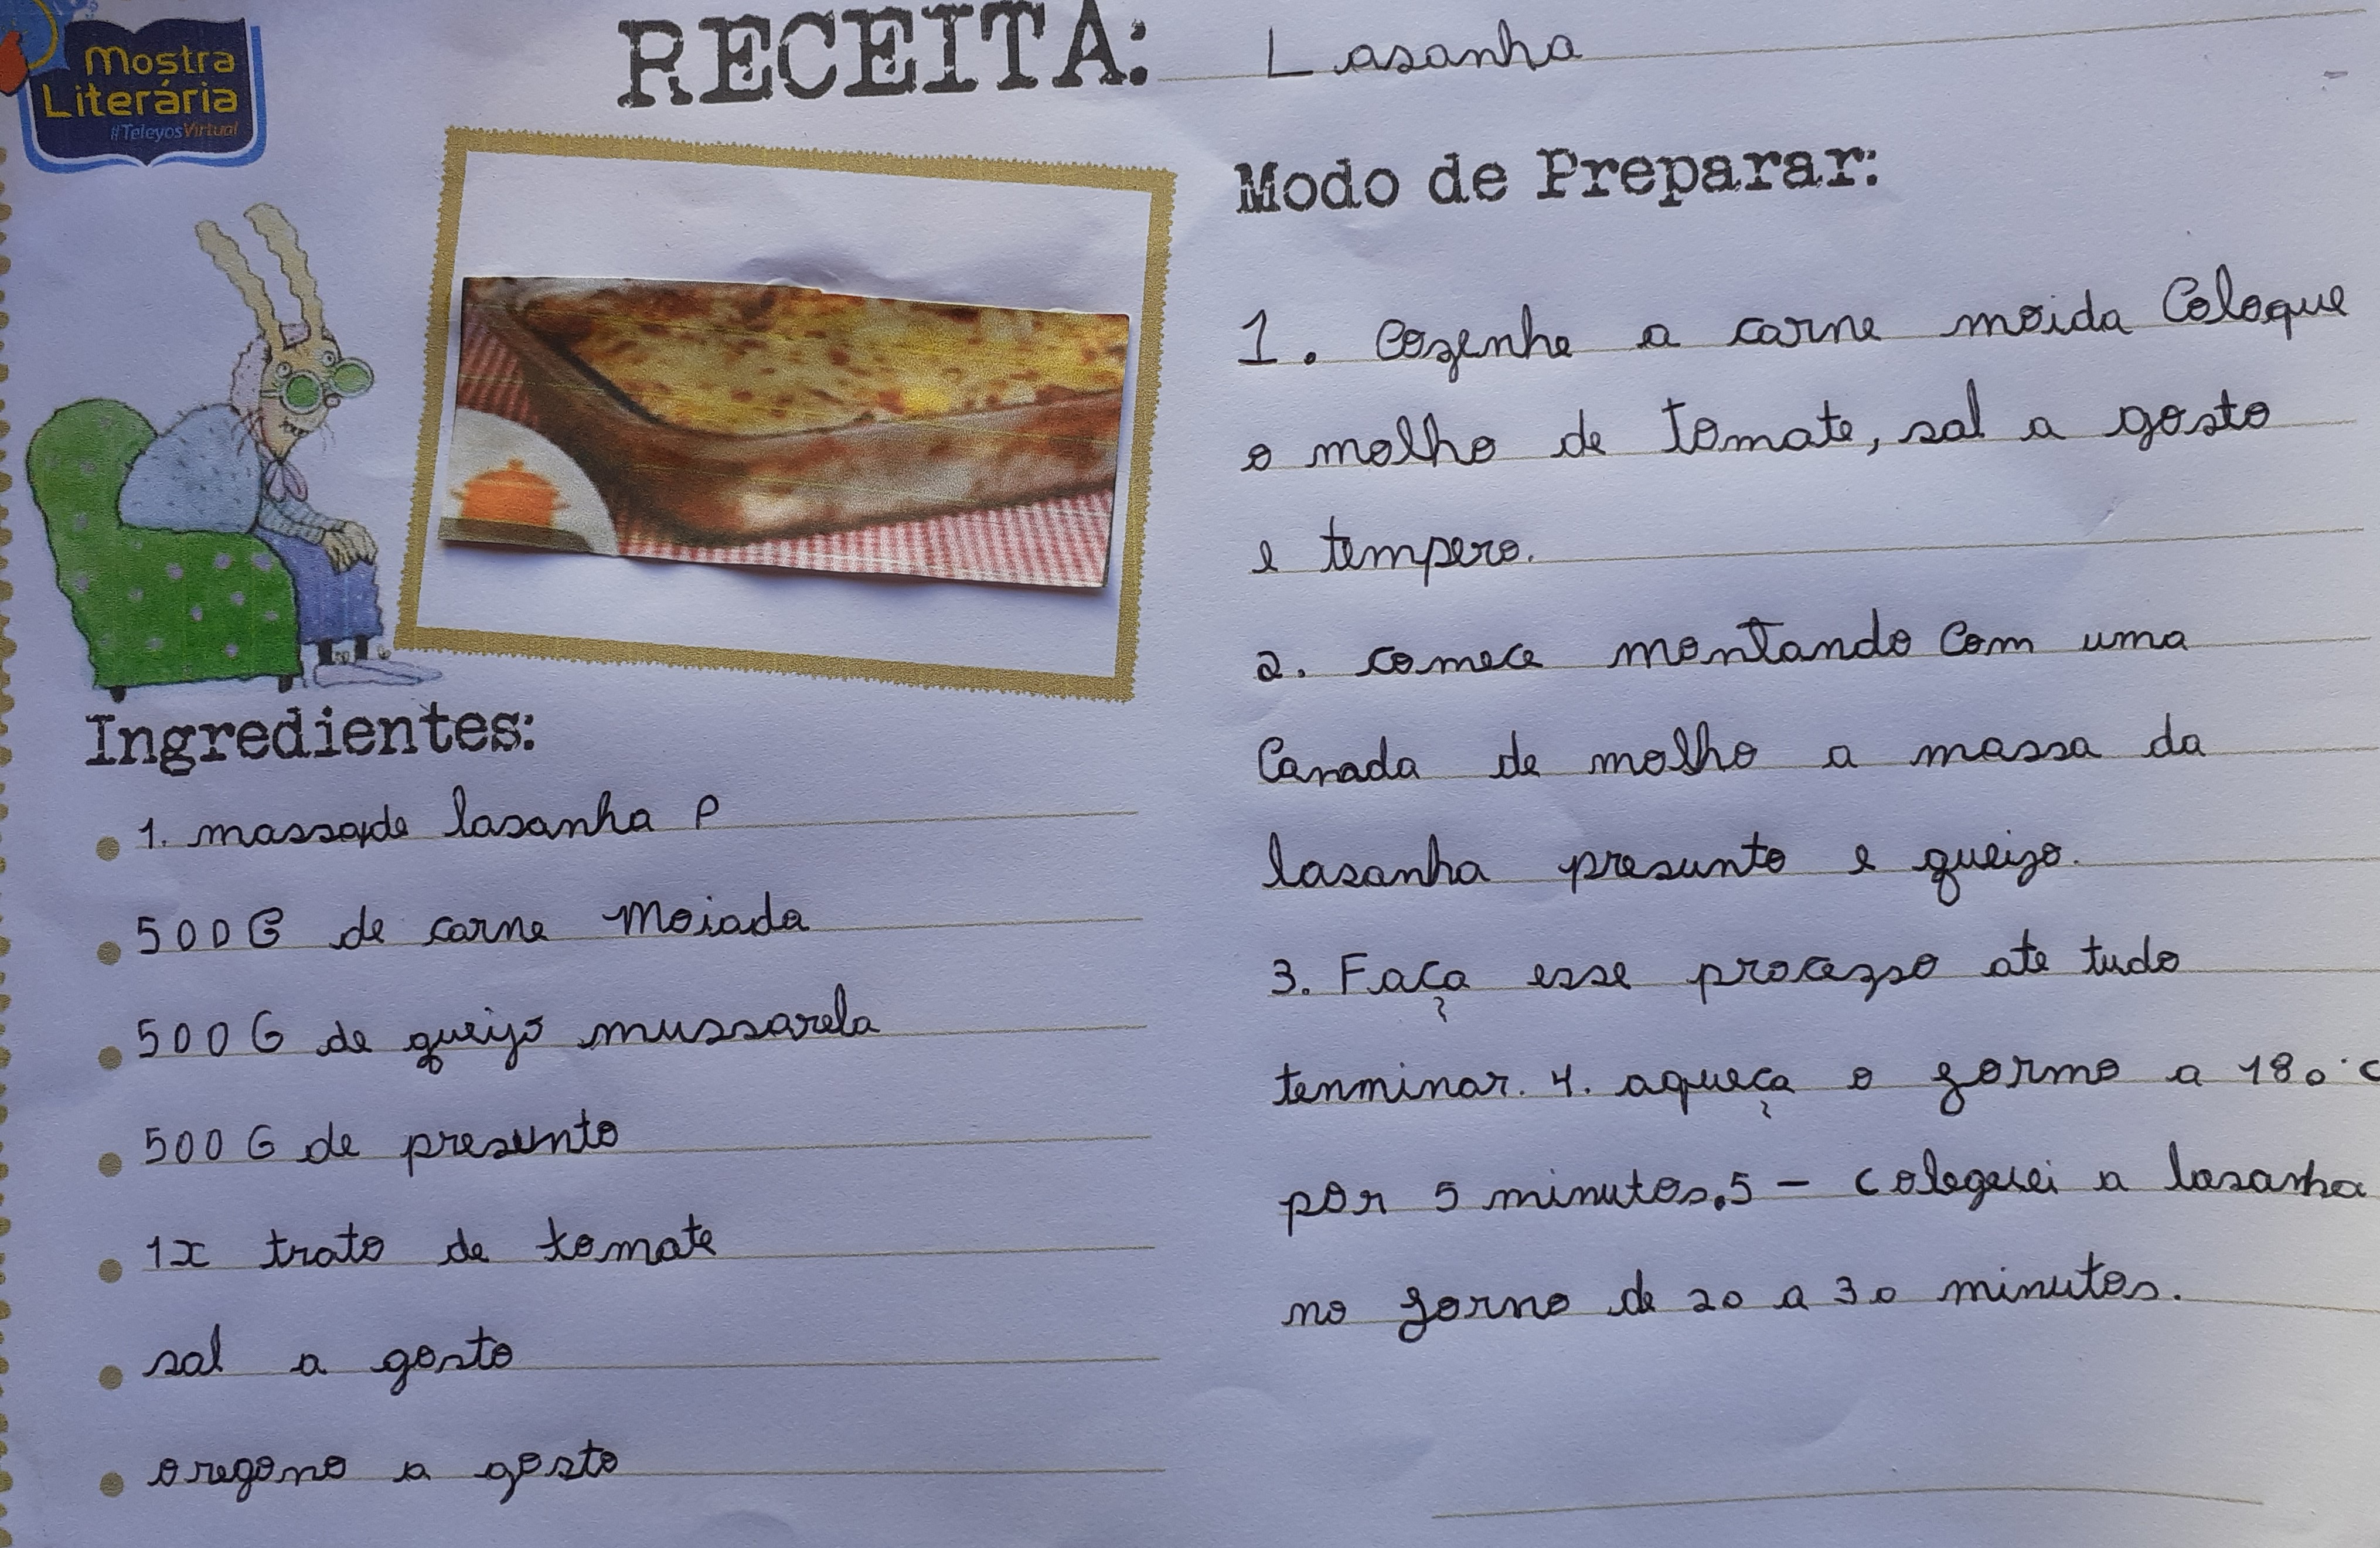 Mostra
Literária
#TeleyosVirtual
RECEITA: Lasanha
Ingredientes:
1. massa de lasanha P
500G de carne Moiada
500G de queijo mussarela
500G de presunto
1x trato de tomate
sal a gosto
oregono a gosto
Modo de Preparar:
1. Cozenhe a carne moida Coloque
o molho de tomate, sal a gosto
e tempero.
2. comece montando com uma
Camada de molho a massa da
lasanha presunto e queijo.
3. Faça esse processo ate tudo
tenminar. 4. aqueça o formo a 180°C
por 5 minutos.5 - colequei a lasanha
no forno de 20 a 30 minutos.